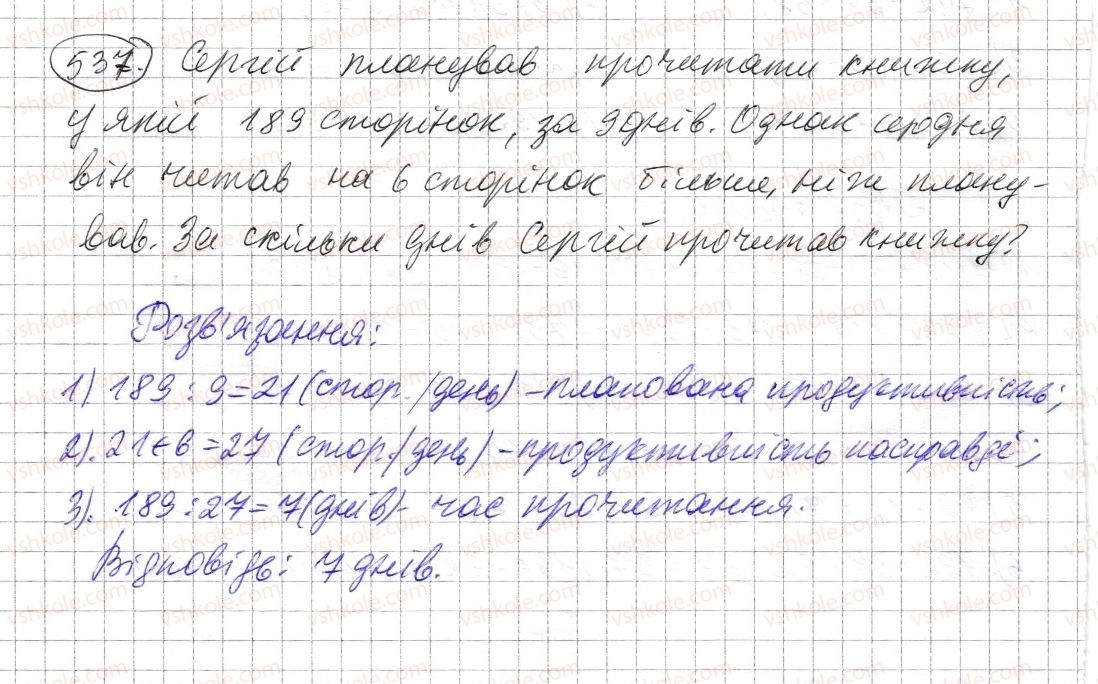 537. Сергій планував прочитати книжку,
у якій 189 сторінок, за 9 днів. Однак
він читав на 6 сторінок більше, ніж плану-
вав. За скільки днів Сергій прочитав книжку?
Розв'язання:
1) 189 : 9 = 21 (стор./день) – планована продуктивність;
2). 21 + 6 = 27 (стор./день) – продуктивність насправді;
3). 189 : 27 = 7 (днів) – час прочитання.
Відповідь: 7 днів.